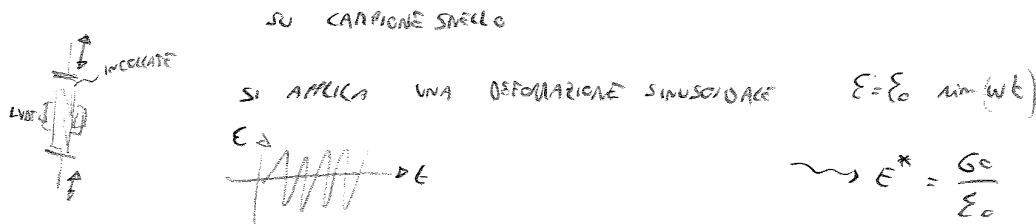 SU CAMPIONE SNELLO
INCOLLATE
LVDT
SI APPLICA UNA DEFORMAZIONE SINUSOIDALE ε = ε₀ sin(ωt)
ε
t
E* = σ₀ / ε₀